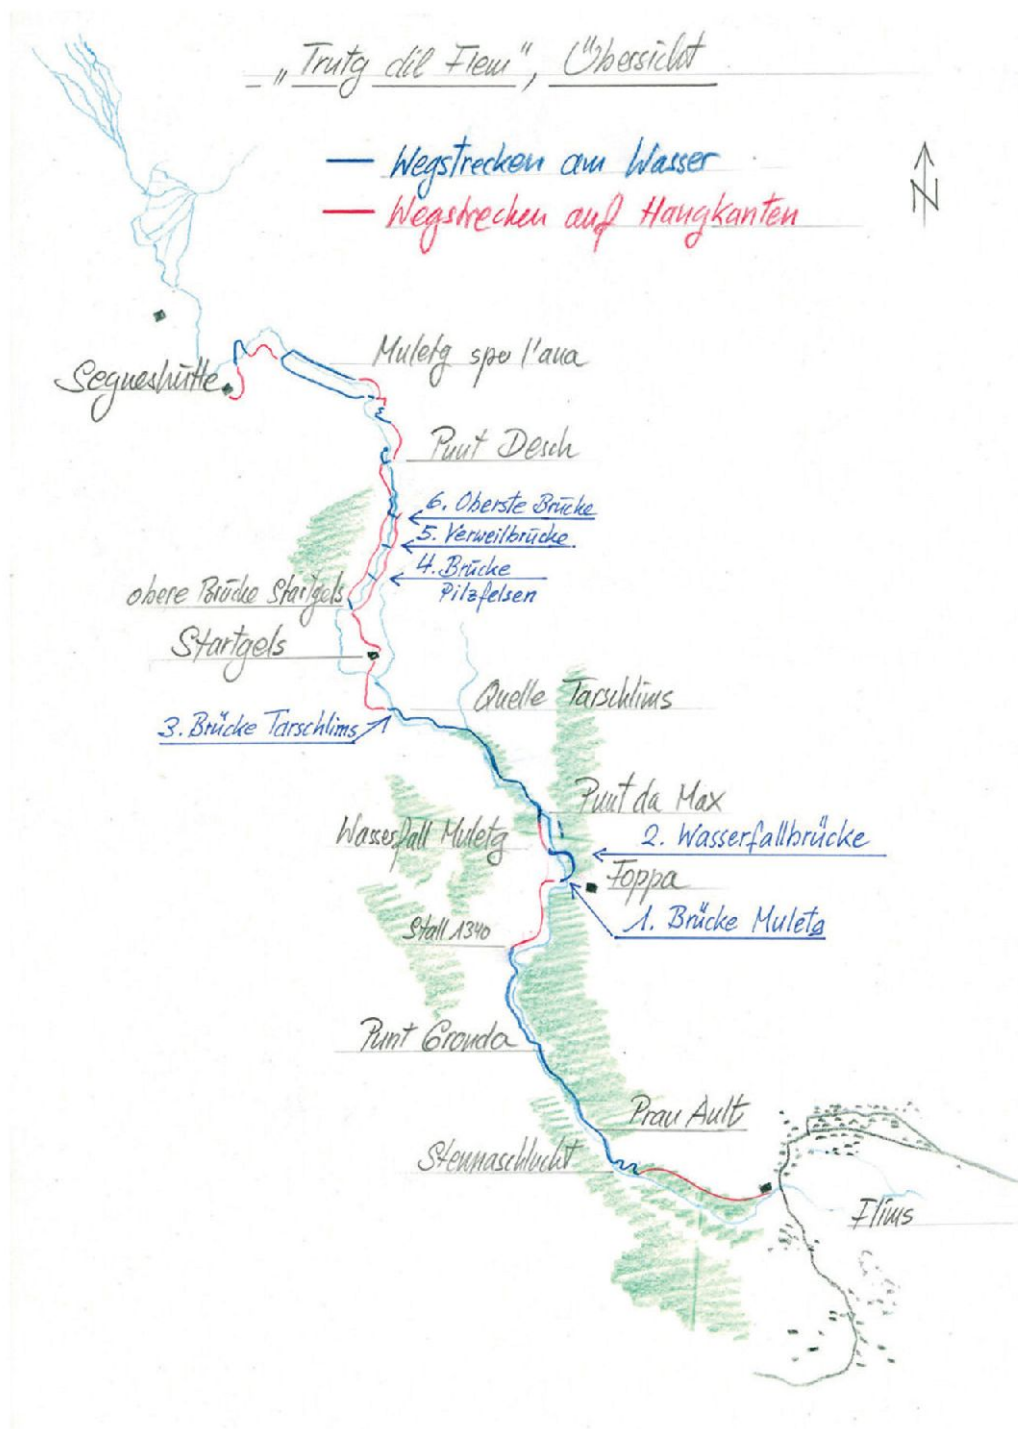 „Trutg dil Flem", Übersicht
Wegstrecken am Wasser
Wegstrecken auf Hangkanten
N
Muletg spo l'aua
Segneshütte
Punt Desch
6. Oberste Brücke
5. Verweilbrücke
4. Brücke
Pilzfelsen
obere Brücke Startgels
Startgels
Quelle Tarschlims
3. Brücke Tarschlims
Punt da Max
Wasserfall Muletg
2. Wasserfallbrücke
Foppa
Stall 1340
1. Brücke Muletg
Punt Gronda
Prau Ault
Stennaschlucht
Flims